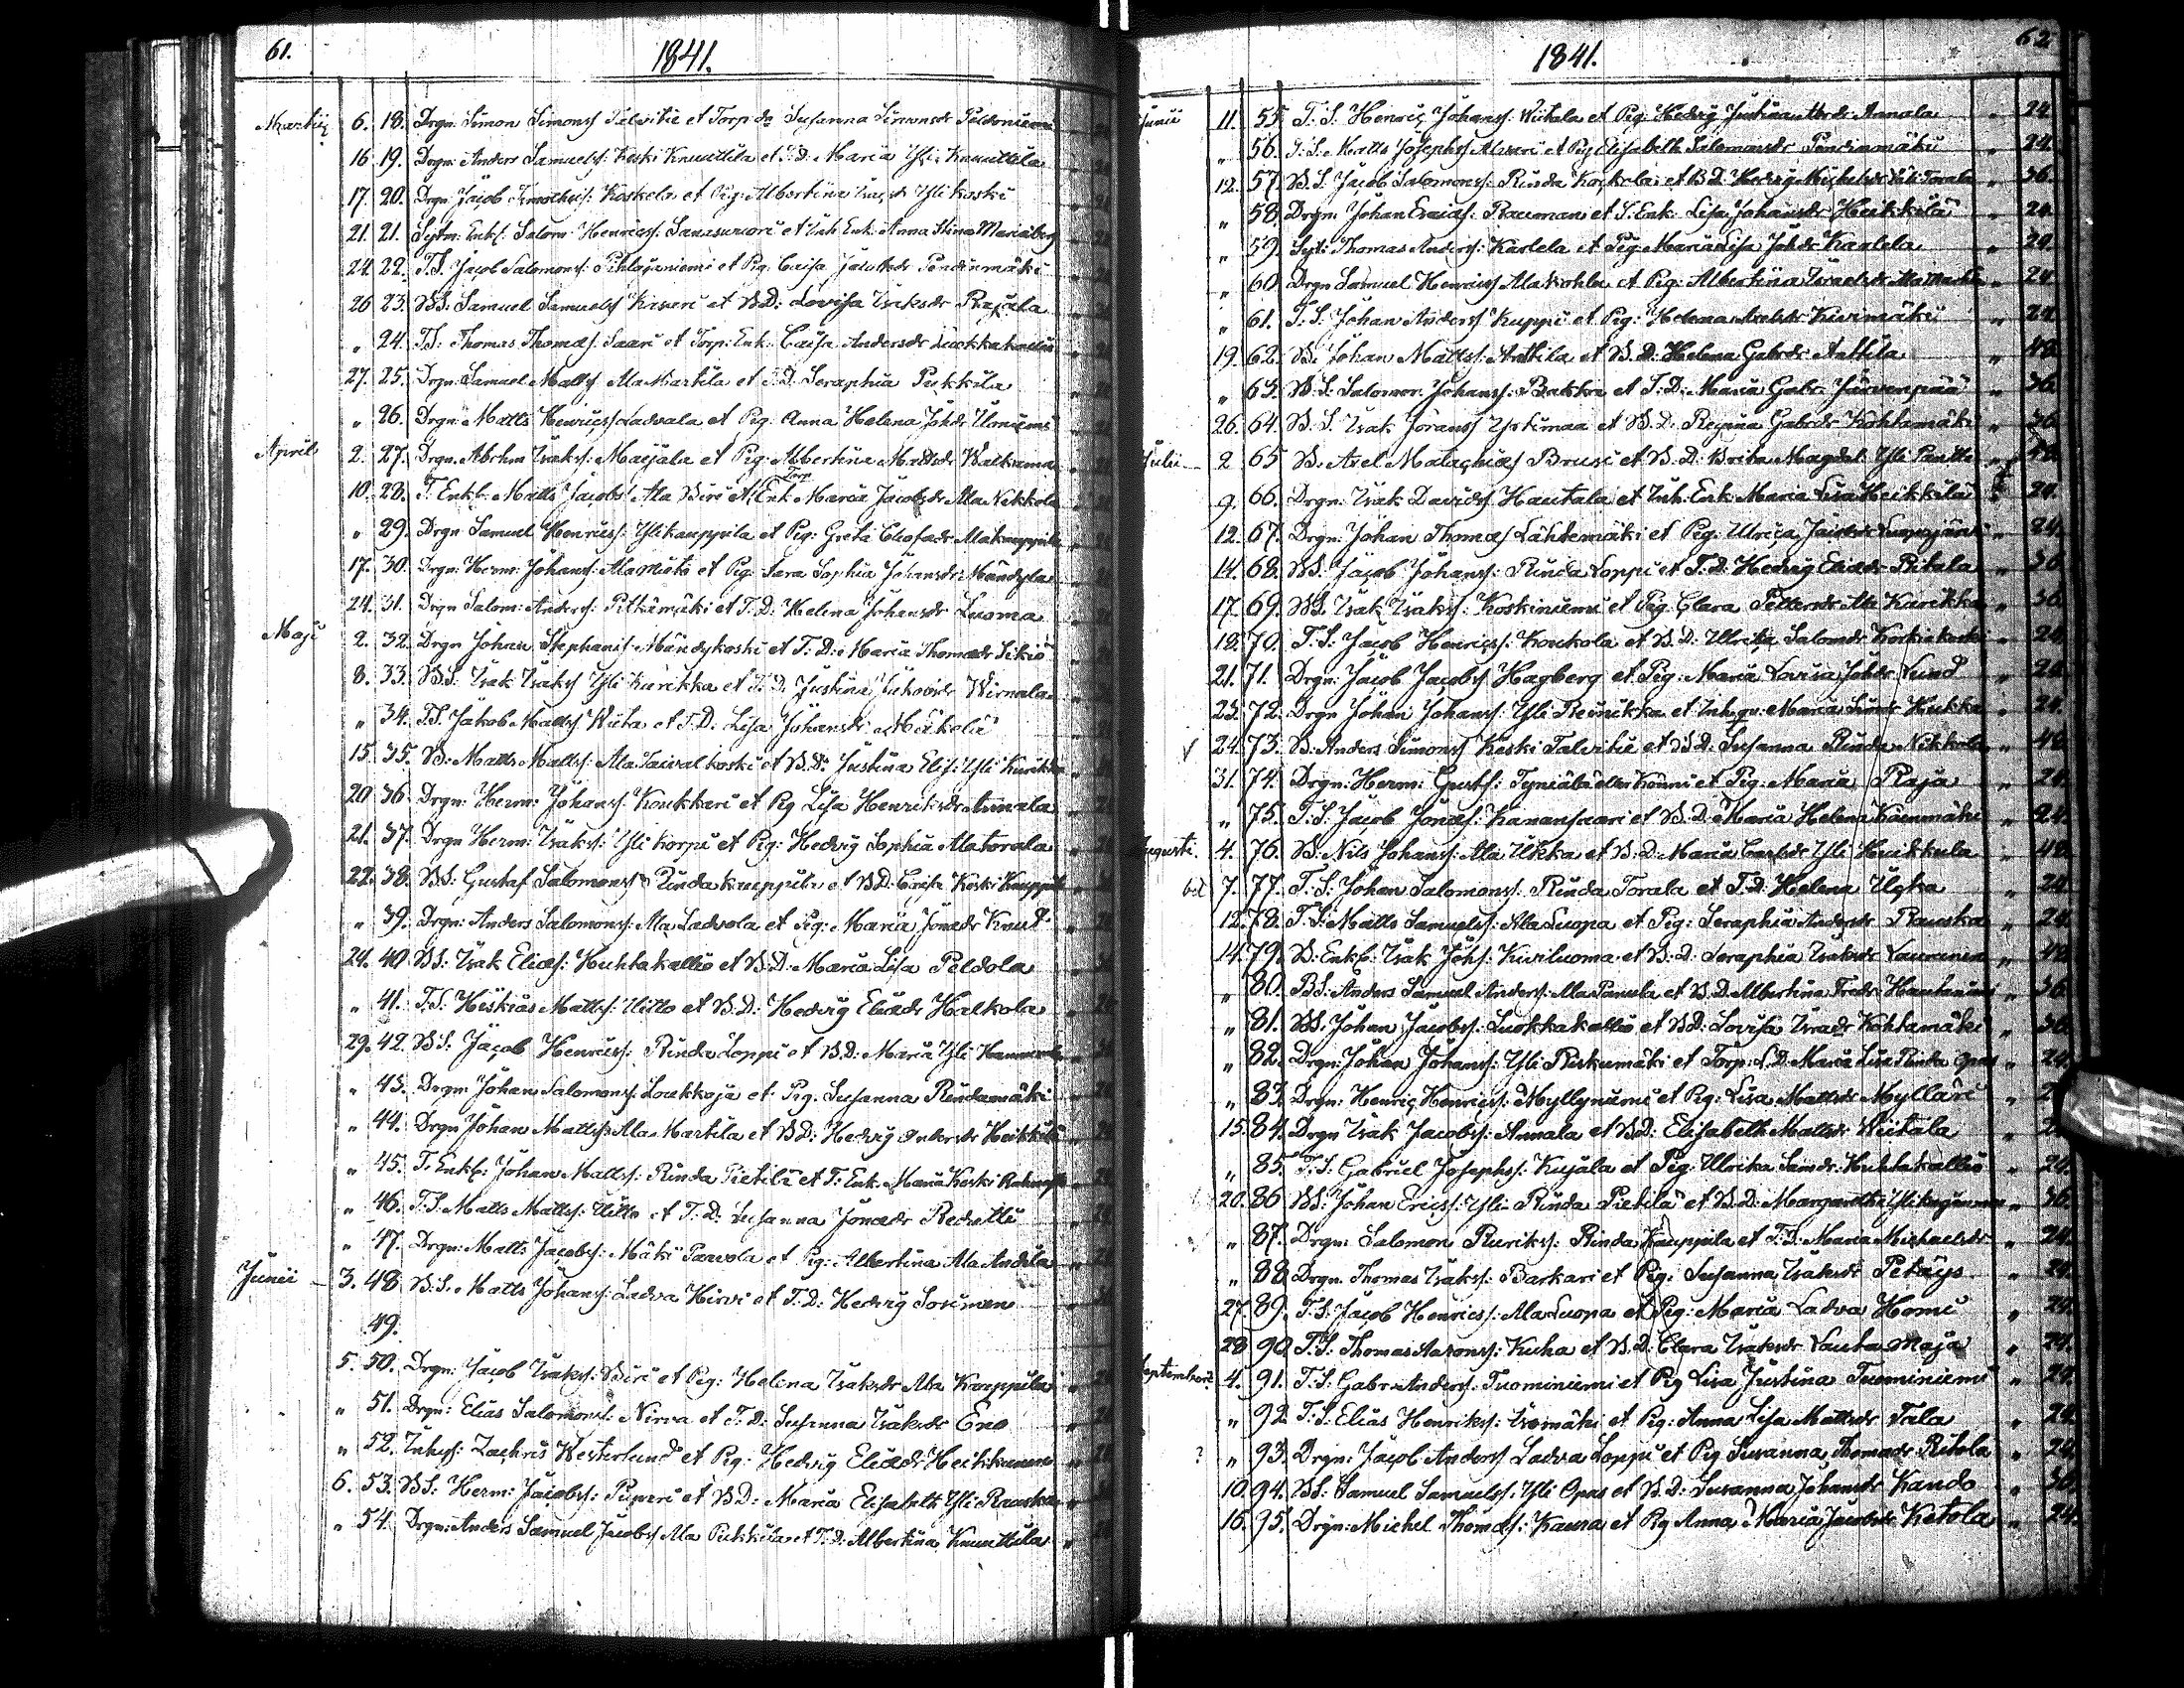 61.
1841.
Martii 6. 18. Drgn: Simon Simonss Talvitie et Torp: dr Susanna Simonsdr Peldoniemi
16 19. Drgn: Anders Samuelss: Keski Knuuttila et T:D: Maria Yli Knuuttila
17. 20. Drgn: Jacob Timotheis: Koskela et Pig: Albertina Isacsdr Ylikoski
21. 21. Sytn: Enkl: Salom: Henricss: Sanasuori et Inh: Enk: Anna Stina Mariæberg
24. 22. T.S. Jacob Salomonss: Pihlajaniemi et Pig: Caisa Pendinmäki
26 23. BS: Samuel Samuelss Kisari et B.D: Lovisa Isaksdr Rajala
" 24. T.S: Thomas Thomæs: Saari et Torp: Enk: Caisa Andersdr Luokkakallio
27. 25. Drgn: Samuel Matts Ala Martila et T.D. Seraphia Pukkila
" 26. Drgn: Matts Henricss Ladvala et Pig: Anna Helena Johdr Uoniemi
April 2. 27. Drgn. Abrhm Isakss: Maijala et Pig: Albertina Mattsdr Walkama
10. 28. T. Enkl: Matts Jacobs Ala Biri et Torp Enk: Maria Jacobsdr Ala Nikkola
" 29. Drgn Samuel Henricss: Ylikauppila et Pig: Greta Eliasdr Alakauppila
17. 30. Drgn: Herm: Johanss: Alamiöti et Pig: Sara Sophia Johansdr Mändylä
24. 31. Drgn Salom: Anderss: Pitkämäki et T.D: Helena Johansdr Luoma
Maji 2. 32. Drgn Johan Stephanis: Mändykoski et T.D: Maria Thomædr Sikiö
8. 33. BS: Isak Isakss Yli Kurikka et T.D. Justina Juhonsdr Wirnala
" 34. T.S. Jakob Matts Wiita et T.D: Lisa Johansdr Mikkelä
15. 35. B: Matts Matts: Ala Taivalkoski et B.D: Justina Elis: Yli Kurikka
20 36. Drgn: Herm: Johanss: Koukkari et Pig Lisa Henriksdr Annala
21. 37. Drgn Herm: Isakss: Yli Korpi et Pig: Hedvig Sophia Alatorala
22. 38. B.S: Gustaf Salomonss Rinda kauppila et B.D: Caisa Keski Kauppila
" 39. Drgn: Anders Salomonss: Ala Ladvala et Pig: Maria Jonædr Knut
24. 40 BS: Isak Eliæs: Huhtakallio et B.D: Maria Lisa Peldola
" 41. T.S. Hiskias Matts: Uitto et B.D: Hedvig Eliædr Halkola
29. 42. B.S. Jacob Henricss: Rinda Loppi et B.D: Maria Yli Hannuksela
" 43. Drgn: Johan Salomonss Loukkoja et Pig. Susanna Rindamäki
" 44. Drgn Johan Mattss Ala Martila et B.D: Hedvig Andersdr Heikkilä
" 45. T. Enkl: Johan Matts: Rinda Pietilä et T: Enk: Maria Keski
" 46. T.S. Matts Matts: Uitto et T.D: Susanna Jonædr Rechatti
" 47. Drgn: Matts Jacobss: Mäki Paavola et Pig: Albertina Ala Andila
Junii 3. 48. B.S. Matts Johanss: Ladva Hirvi et T.D: Hedvig Soisman
49.
5. 50. Drgn: Jacob Isakss: Biri et Pig: Helena Isaksdr Ala Kauppila
" 51. Drgn: Elias Salomonss: Nirva et T.D: Susanna Isaksdr Eno
" 52. Inhys: Zachris Westerlund et Pig: Hedvig Eliædr Heikkinen
6. 53. BS: Herm: Jacobss: Piperi et B.D: Maria Elisabeth Yli Rauska
" 54. Drgn: Anders Samuel Jacobss Ala Pukkila et T.D: Albertina Knuuttila
62
1841.
Junii 11. 55. T.S. Henric Johanss: Wiitala et Pig: Hedvig Justina Andr Annala " 24
" 56. T.S. Matts Josephss Alvari et Pig Elisabeth Salomonsdr Pendinmäki " 24.
12. 57. B.S. Jacob Salomonss: Rinda Koskela et B.D: Hedvig Michelsdr Yli Torala " 36.
" 58. Drgn: Johan Esaiæs: Rauman et S. Enk: Lisa Johansdr Heikkilä " 24
" 59. Syt: Thomas Anderss: Karlela et Pig Maria Lisa Johdr Karlela " 24.
" 60. Drgn Samuel Henricss Alakohla et Pig: Albertina Israelsdr Ala Martila " 24
" 61. T.S: Johan Anderss Kuppi et Pig: Helena Axelsdr Kivimäki " 24
19. 62. B. Johan Matts: Anttila et B.D. Helena Gabrsdr Anttila " 48
" 63. B.S. Salomon Johanss: Bakka et T.D: Maria Gabr: Järvenpää " 36.
26. 64. B.S. Isak Joranss Yrkimaa et B.D. Regina Gabrsdr Kohtamäki " 36
Julii 2 65 B. Axel Malachiæs Brusi et B.D. Brita Magdal: Yli Pantti " 48
9. 66. Drgn: Isak Davidss Hautala et Inh: Enk Maria Lisa Heikkilä " 24.
12. 67. Drgn: Johan Thomæs Lähtemäki et Pig: Ulrica Jacobsdr Luopajärvi " 24.
14. 68. BS. Jacob Johanss: Rinda Loppi et T.D: Hedvig Eliædr Ritala " 36
17. 69. B.S. Isak Isakss: Koskiniemi et Pig. Clara Pettersdr Ala Kurikka " 36.
18. 70. T.S: Jacob Henricss: Koukola et B.D: Ulrika Salomdr Koskikoski " 24
21. 71. Drgn: Jacob Jacobss Hagberg et Pig: Maria Lovisa Johdr Lund " 24
23. 72. Drgn Johan Johanss: Yli Reinikka et Inhqv: Maria Simdr Kukka " 24.
√ 24. 73. B: Anders Simonss Keski Talvitie et B.D: Susanna Rinda Nikkola " 48
31. 74. Drgn: Herm: Gustfs: Tyniälä eller Könni et Pig: Maria Raja " 24.
" 75. T.S. Jacob Jonæs: Kananssaari et B.D. Maria Helena Koivumäki " 24.
Augusti. 4. 76. B: Nils Johanss: Ala Ukka et B.D. Maria Carlsdr Yli Huikkula " 48.
7. 77. T.S: Johan Salomonss. Rinda Torala et T.D. Helena Ucka " 24
12. 78. T.S. Matts Samuelss: Ala Luopa et Pig: Seraphia Andersdr Rauska " 24
14. 79. B. Enkl: Isak Johs: Kiviluoma et B.D. Seraphia Isaksdr Laurinen " 48
" 80. B.S: Anders Samuel Anderss: Ala Panula et B.D. Albertina Fredr: Hautaniemi " 36.
" 81. BS. Johan Jacobss: Luokkakallio et B.D: Lovisa Israedr Kohtamäki " 36.
" 82. Drgn: Johan Johanss: Yli Riskumäki et Torp: L.D. Maria Lisa Rinta Opas " 24
" 83. Drgn: Henric Henricss: Myllyniemi et Pig: Lisa Mattsdr Myllari "
15. 84. Drgn Isak Jacobss: Annala et B.D: Elisabeth Mattsdr Wiitala "
" 85. T.S. Gabriel Josephss: Kujala et Pig: Ulrika Samdr Huhtakallio " 24
20. 86 BS: Johan Ericss: Yli Rinda Pietilä et B.D. Margaretha " 36.
" 87. Drgn: Salomon Rurikss: Rinda Kauppila et T.D. Maria Michaelsdr " 24.
" 88. Drgn. Thomas Isakss: Barkari et Pig: Susanna Isaksdr Petäys " 24
27. 89. T.S. Jacob Henricss: Ala Luopa et Pig: Maria Ladva Homi " 24.
28 90. T.S. Thomas Aaronss: Kuha et B.D. Clara Isaksdr Lauta Maja " 24.
Septembris 4. 91. T.S: Gabr: Anderss: Tuominiemi et Pig Lisa Justina Tuominiemi " 24
" 92. T.S. Elias Henrikss: Isomäki et Pig: Anna Lisa Mattsdr Tala " 24.
? " 93. Drgn: Jacob Anderss Ladva Loppi et Pig Susanna Thomædr Ritola " 24
10. 94. BS: Samuel Samuelss: Yli Opas et B.D: Susanna Johansdr Kando " 36.
16. 95. Drgn: Michel Thomæs: Kaura et Pig Anna Maria Jacobsdr Ketola " 24.